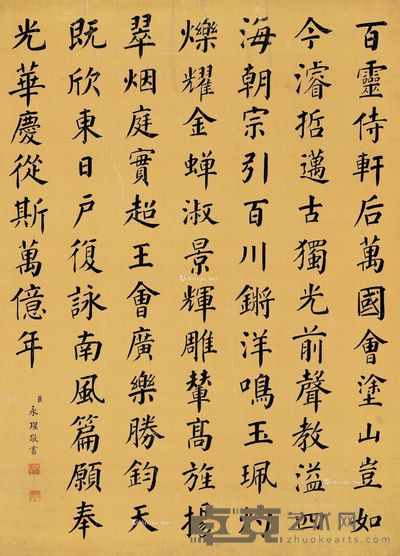 百靈侍軒后萬國會塗山豈如
今濬哲邁古獨光前聲教溢四
海朝宗引百川鏘洋鳴玉珮灼
爍耀金蝉淑景輝雕輦高旌揚
翠烟庭實超王會廣樂勝鈞天
既欣東日戶復詠南風篇願奉
光華慶從斯萬億年
臣永瑆敬書
卓克艺术网
www.zhuokearts.com